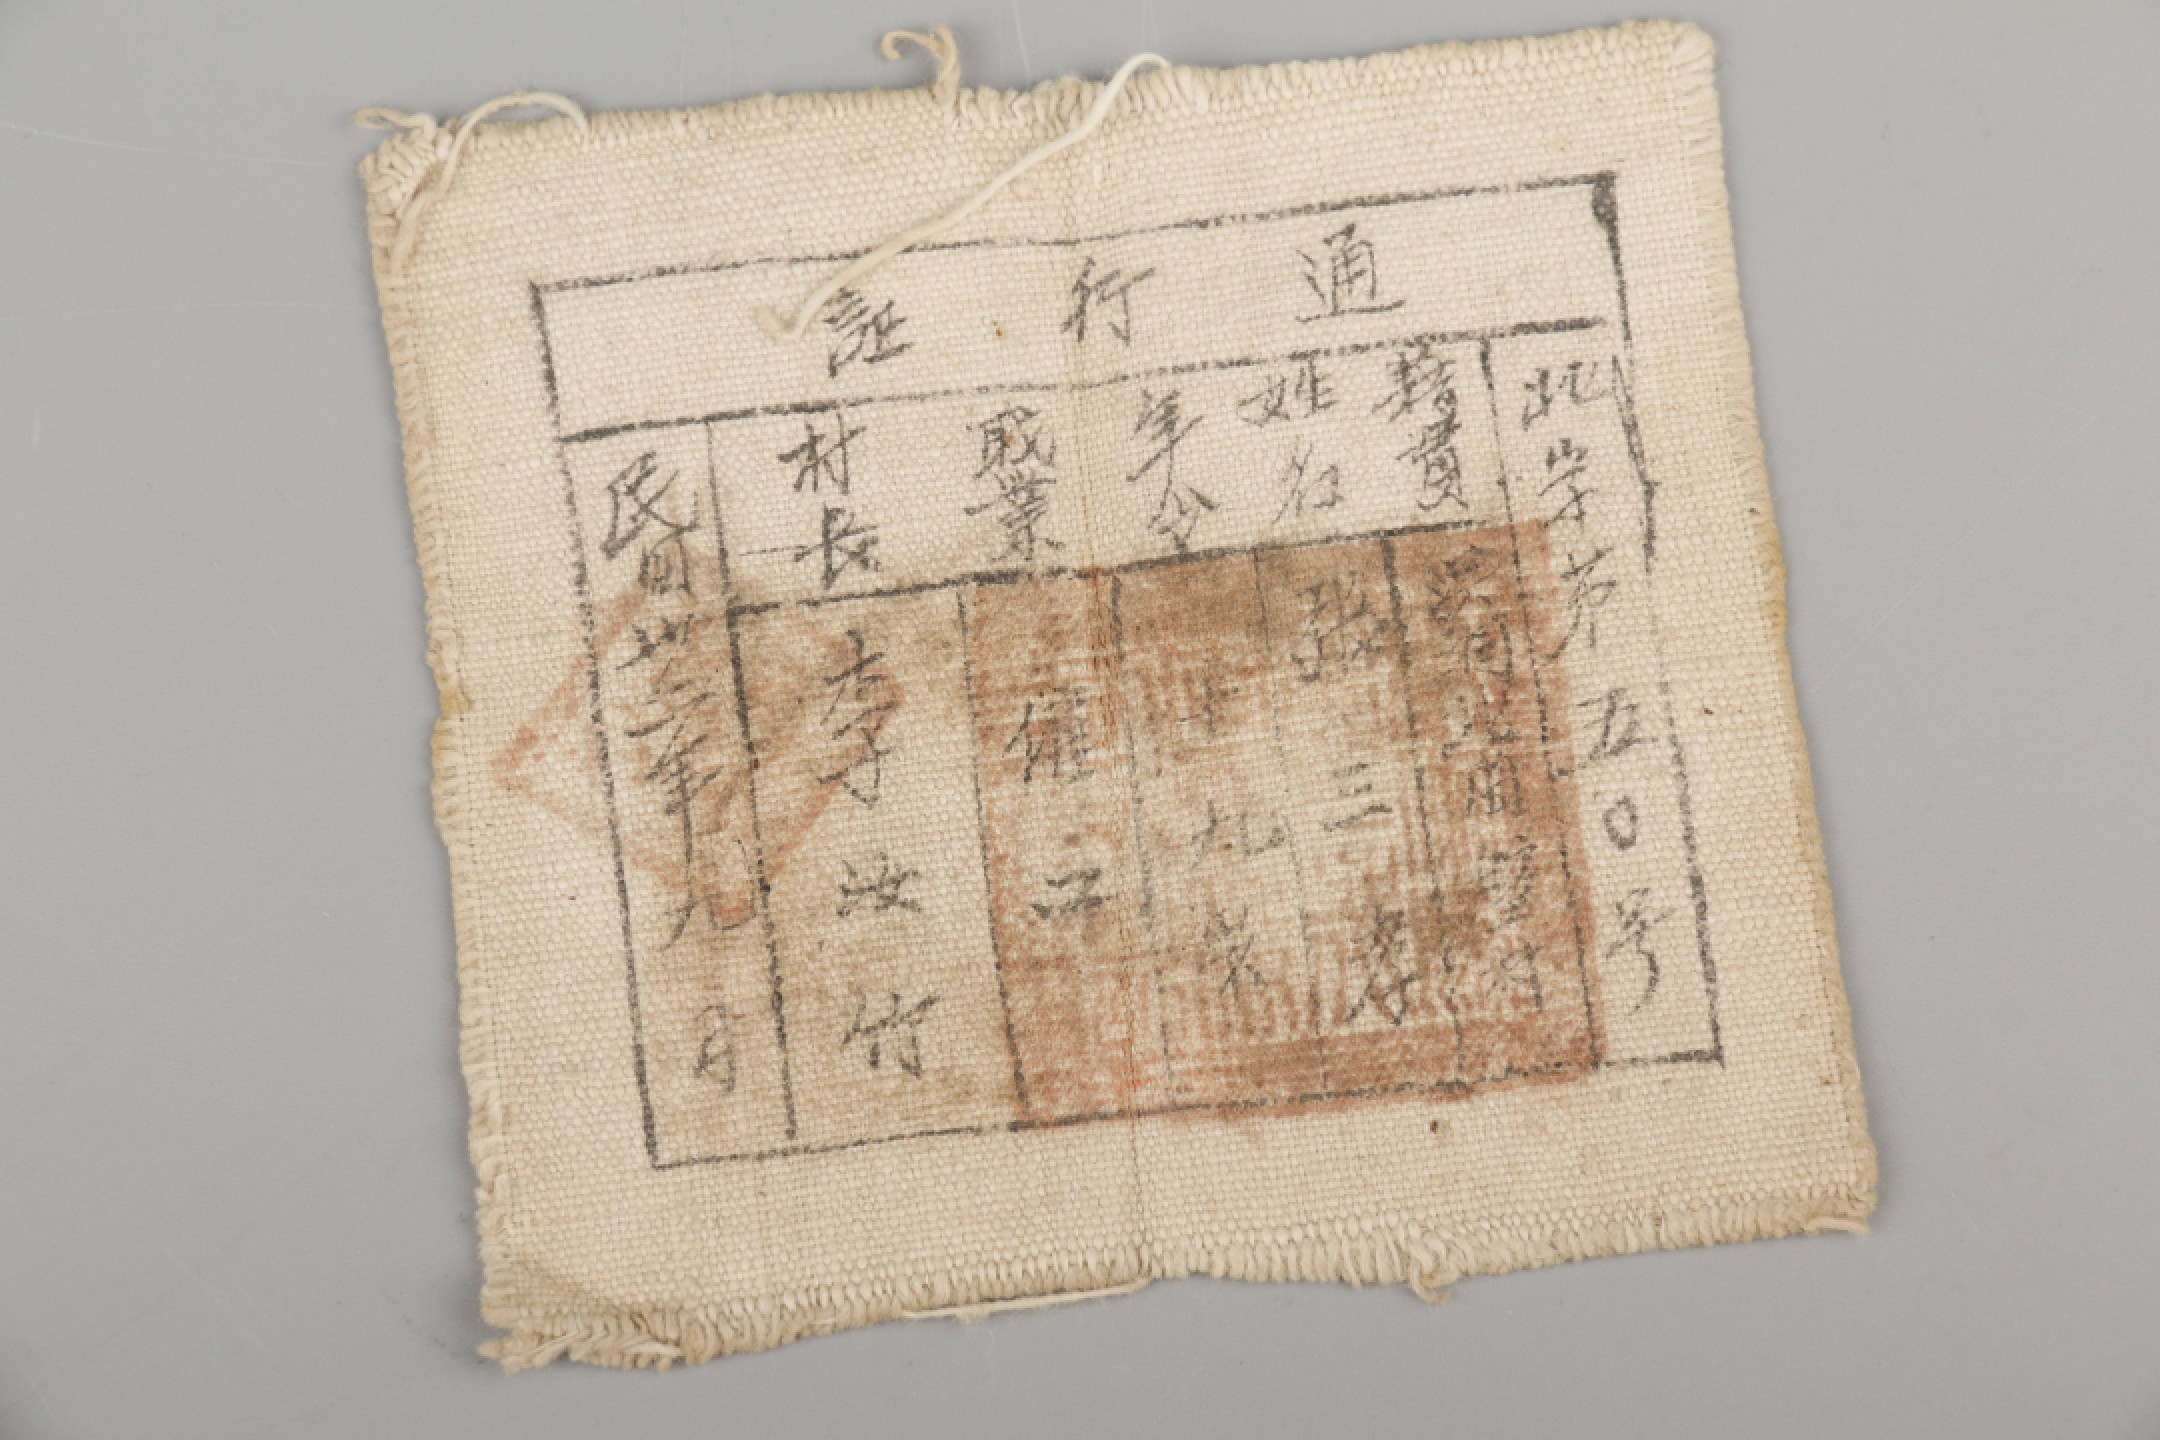 通行証
此字第五〇号
籍貫
姓名 張三孝
年令 十九岁
職業 僱工
村長 李汝竹
民国卅三年九月